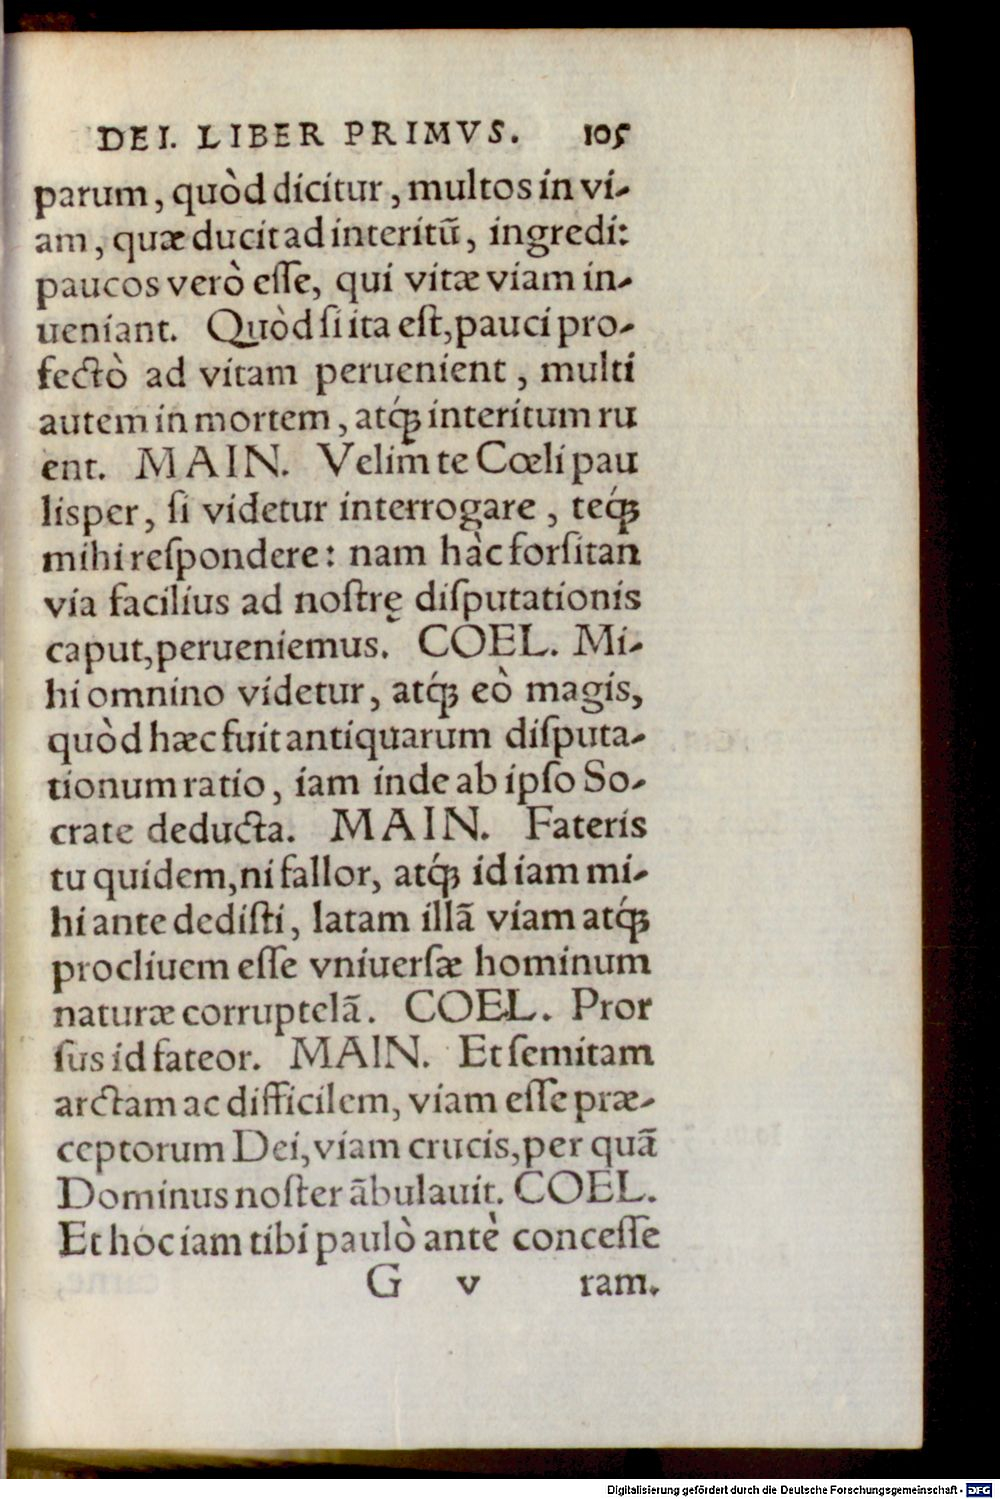 DEI. LIBER PRIMVS. 105
parum, quòd dicitur, multos in vi-
am, quæ ducit ad interitũ, ingredi:
paucos verò eſſe, qui vitæ viam in-
ueniant. Quòd ſi ita eſt, pauci pro-
fectò ad vitam peruenient, multi
autem in mortem, atq́ꝫ interitum ru
ent. MAIN. Velim te Cœli pau
lisper, ſi videtur interrogare, teq́ꝫ
mihi reſpondere: nam hàc forſitan
via facilius ad noſtrę diſputationis
caput, perueniemus. COEL. Mi-
hi omnino videtur, atq́ꝫ eò magis,
quòd hæc fuit antiquarum diſputa-
tionum ratio, iam inde ab ipſo So-
crate deducta. MAIN. Fateris
tu quidem, ni fallor, atq́ꝫ id iam mi-
hi ante dediſti, latam illã viam atq́ꝫ
procliuem eſſe vniuerſæ hominum
naturæ corruptelã. COEL. Pror
ſus id fateor. MAIN. Et ſemitam
arctam ac difficilem, viam eſſe præ-
ceptorum Dei, viam crucis, per quã
Dominus noſter ãbulauit. COEL.
Et hoc iam tibi paulò antè conceſſe
G v ram.
Digitalisierung gefördert durch die Deutsche Forschungsgemeinschaft - DFG